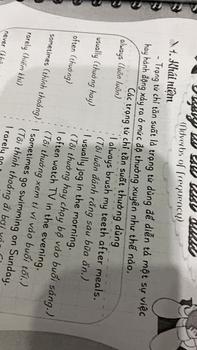 1. Khái niệm
(Adverbs of frequency)
- Trạng từ chỉ tần suất là trạng từ dùng để diễn tả một sự việc
hay hành động xảy ra ở mức độ thường xuyên như thế nào.
Các trạng từ chỉ tần suất thường dùng
always (luôn luôn)
I always brush my teeth after meals.
(Tôi luôn đánh răng sau bữa ăn.)
usually (thường hay)
I usually jog in the morning.
(Tôi thường hay chạy bộ vào buổi sáng.)
often (thường)
I often watch TV in the evening.
(Tôi thường xem ti vi vào buổi tối.)
sometimes (thỉnh thoảng)
I sometimes go swimming on Sunday.
(Tôi thỉnh thoảng đi bơi vào
rarely (hiếm khi)
I rarely go
never